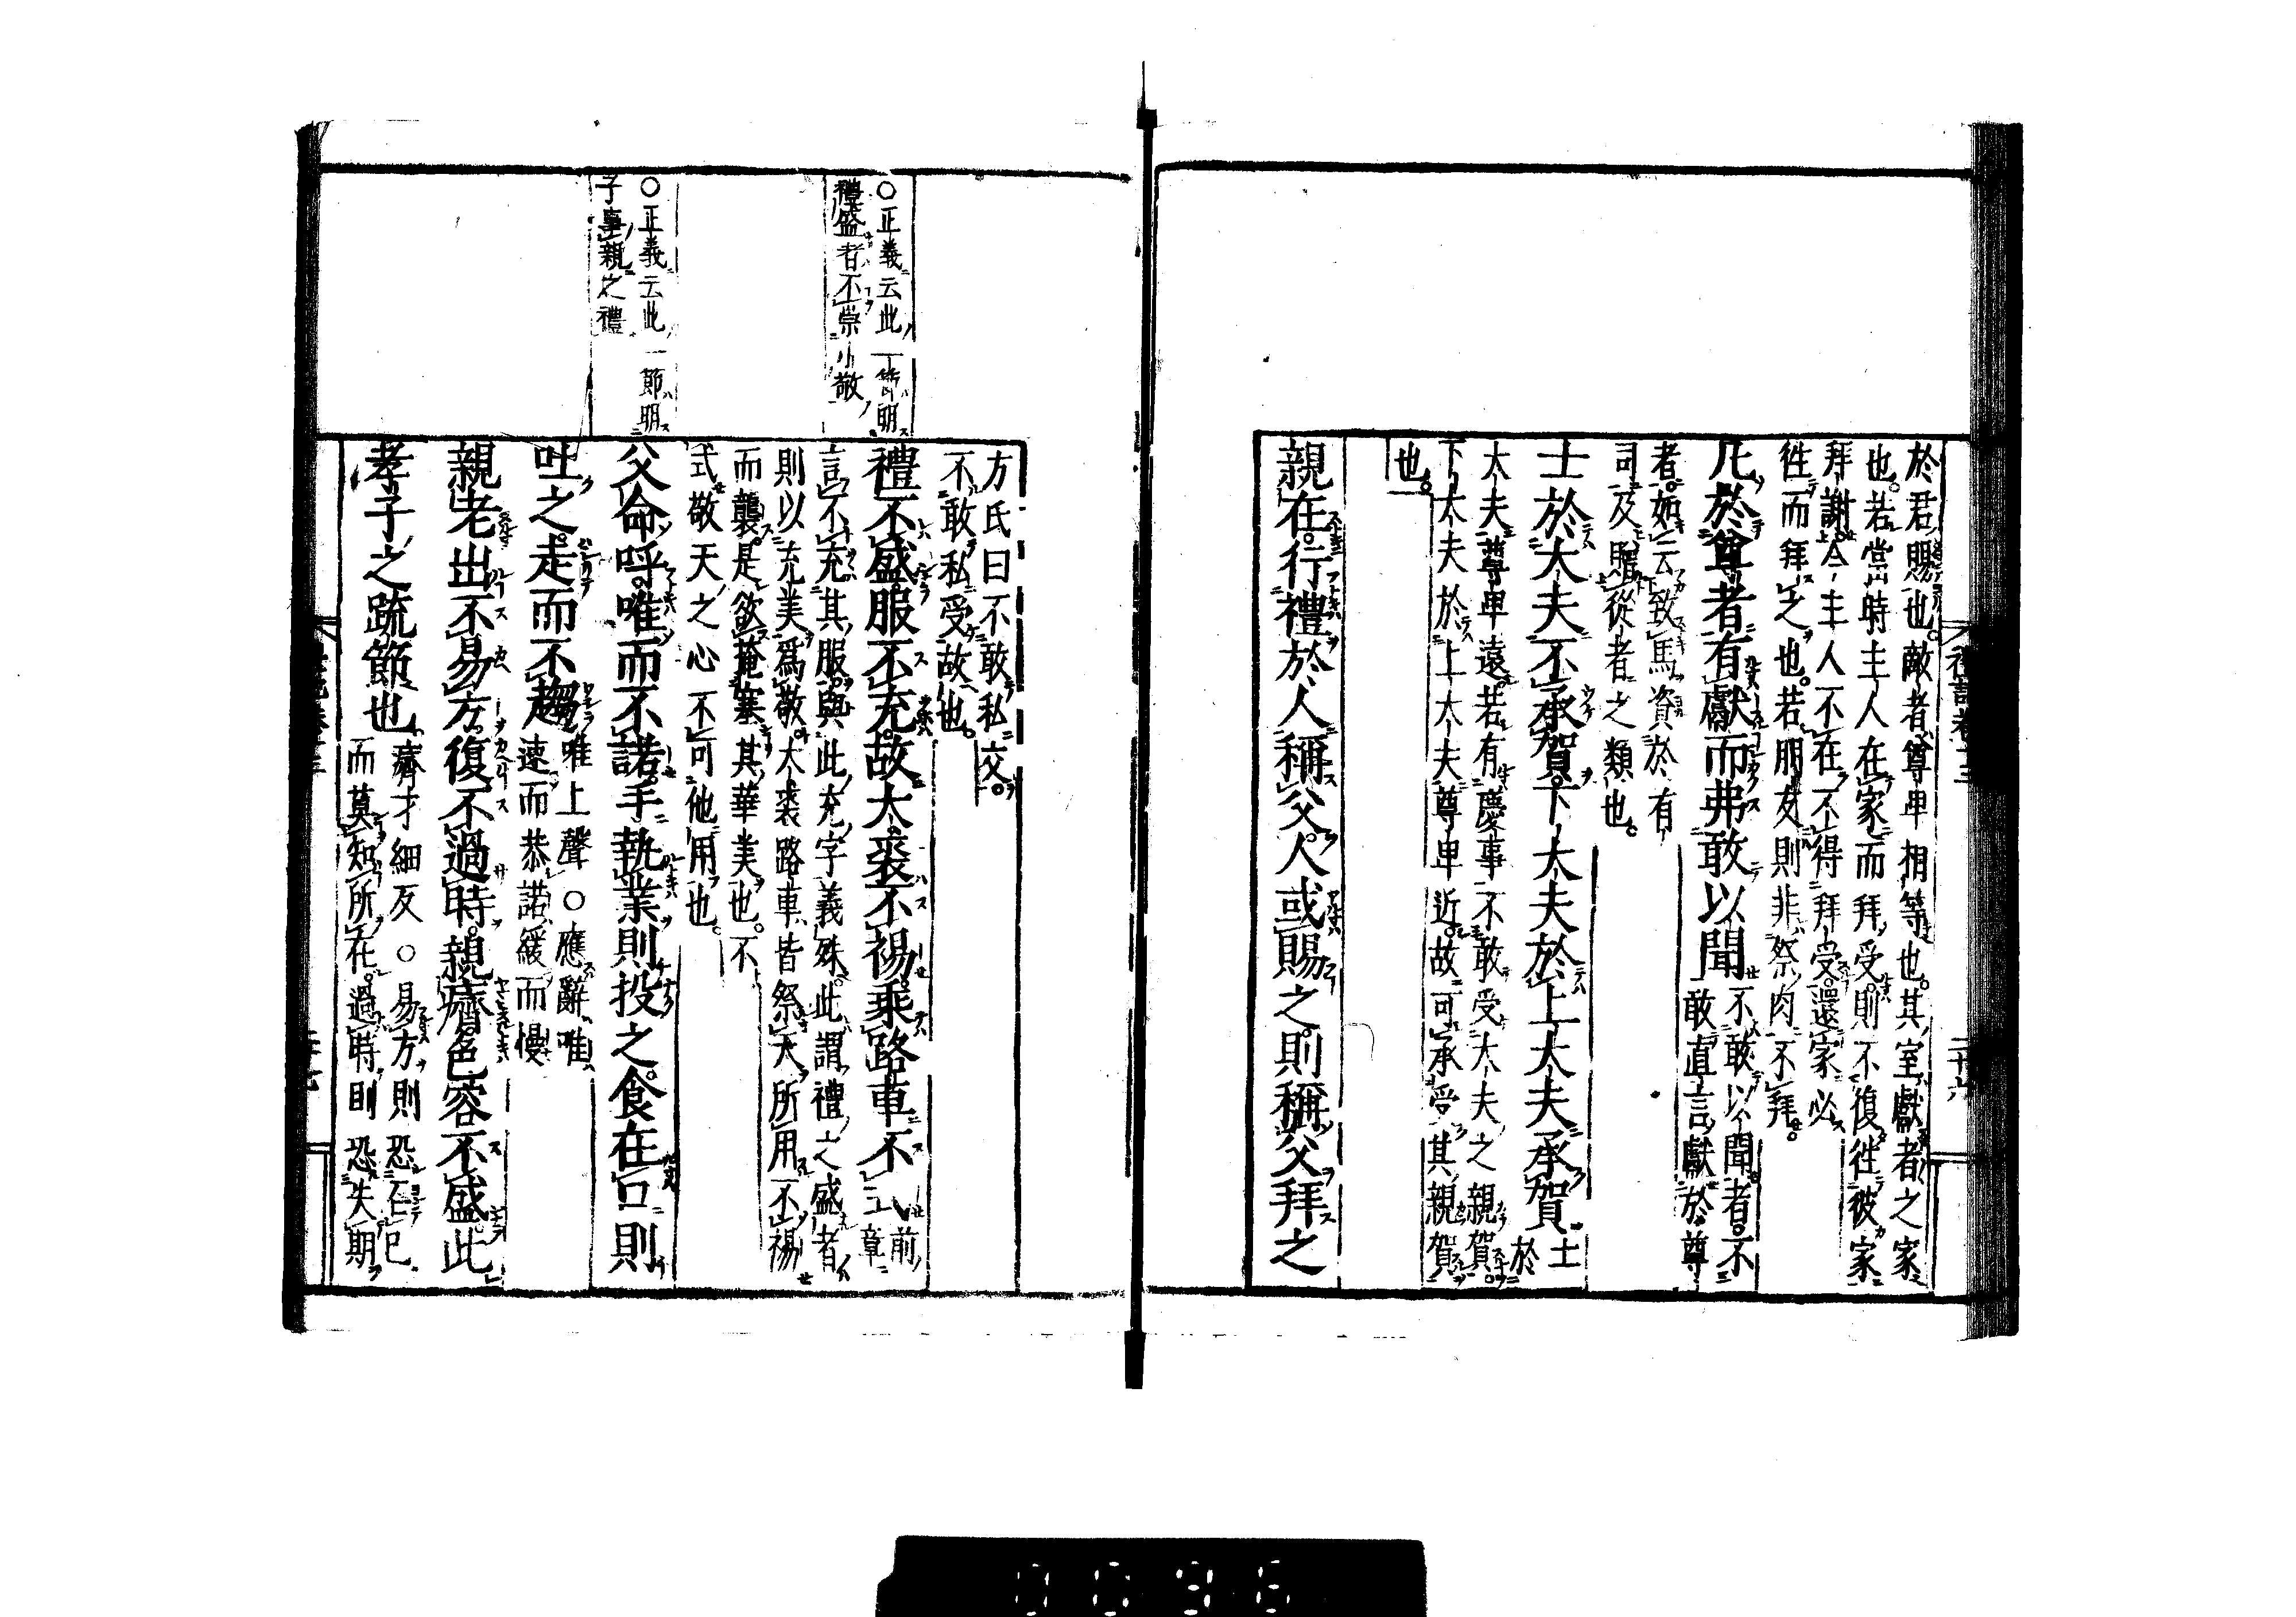 於君賜也。敵者尊卑相等也。其室獻者之家
也。若當時主人在家而拜受。則不復徃彼家
拜謝。今主人不在不得拜受。還家必
徃而拜之也。若朋友則非祭肉不拜。
凡於尊者有獻而弗敢以聞
不敢以聞者。不
敢直言獻於尊
者。如云致馬資於有
司及贈從者之類也。
士於大夫不承賀。下大夫於上大夫承賀
士於
大夫尊卑遠。若有慶事不敢受大夫之親賀。
下大夫於上大夫尊卑近。故可承受其親賀
也。
親在。行禮於人稱父。人或賜之。則稱父拜之
禮記卷十三
二十六
方氏曰不敢私交。
不敢私受故也。
○正義云此一節明
禮盛者不崇小敬
禮不盛服不充。故大裘不裼。乘路車不式
前
章
言不充其服。與此充字義殊。此謂禮之盛者
則以充美爲敬。大裘路車皆祭天所用不裼
而襲。是欲掩塞其華美也。不
式敬天之心不可他用也。
○正義云此一節明
子事親之禮
父命呼。唯而不諾。手執業則投之。食在口則
吐之。走而不趨
唯上聲○應辭唯
速而恭諾緩而慢
親老出不易方。復不過時。親癠色容不盛。此
孝子之疏節也
癠才細反○易方則恐已
而莫知所在。過時則恐失期